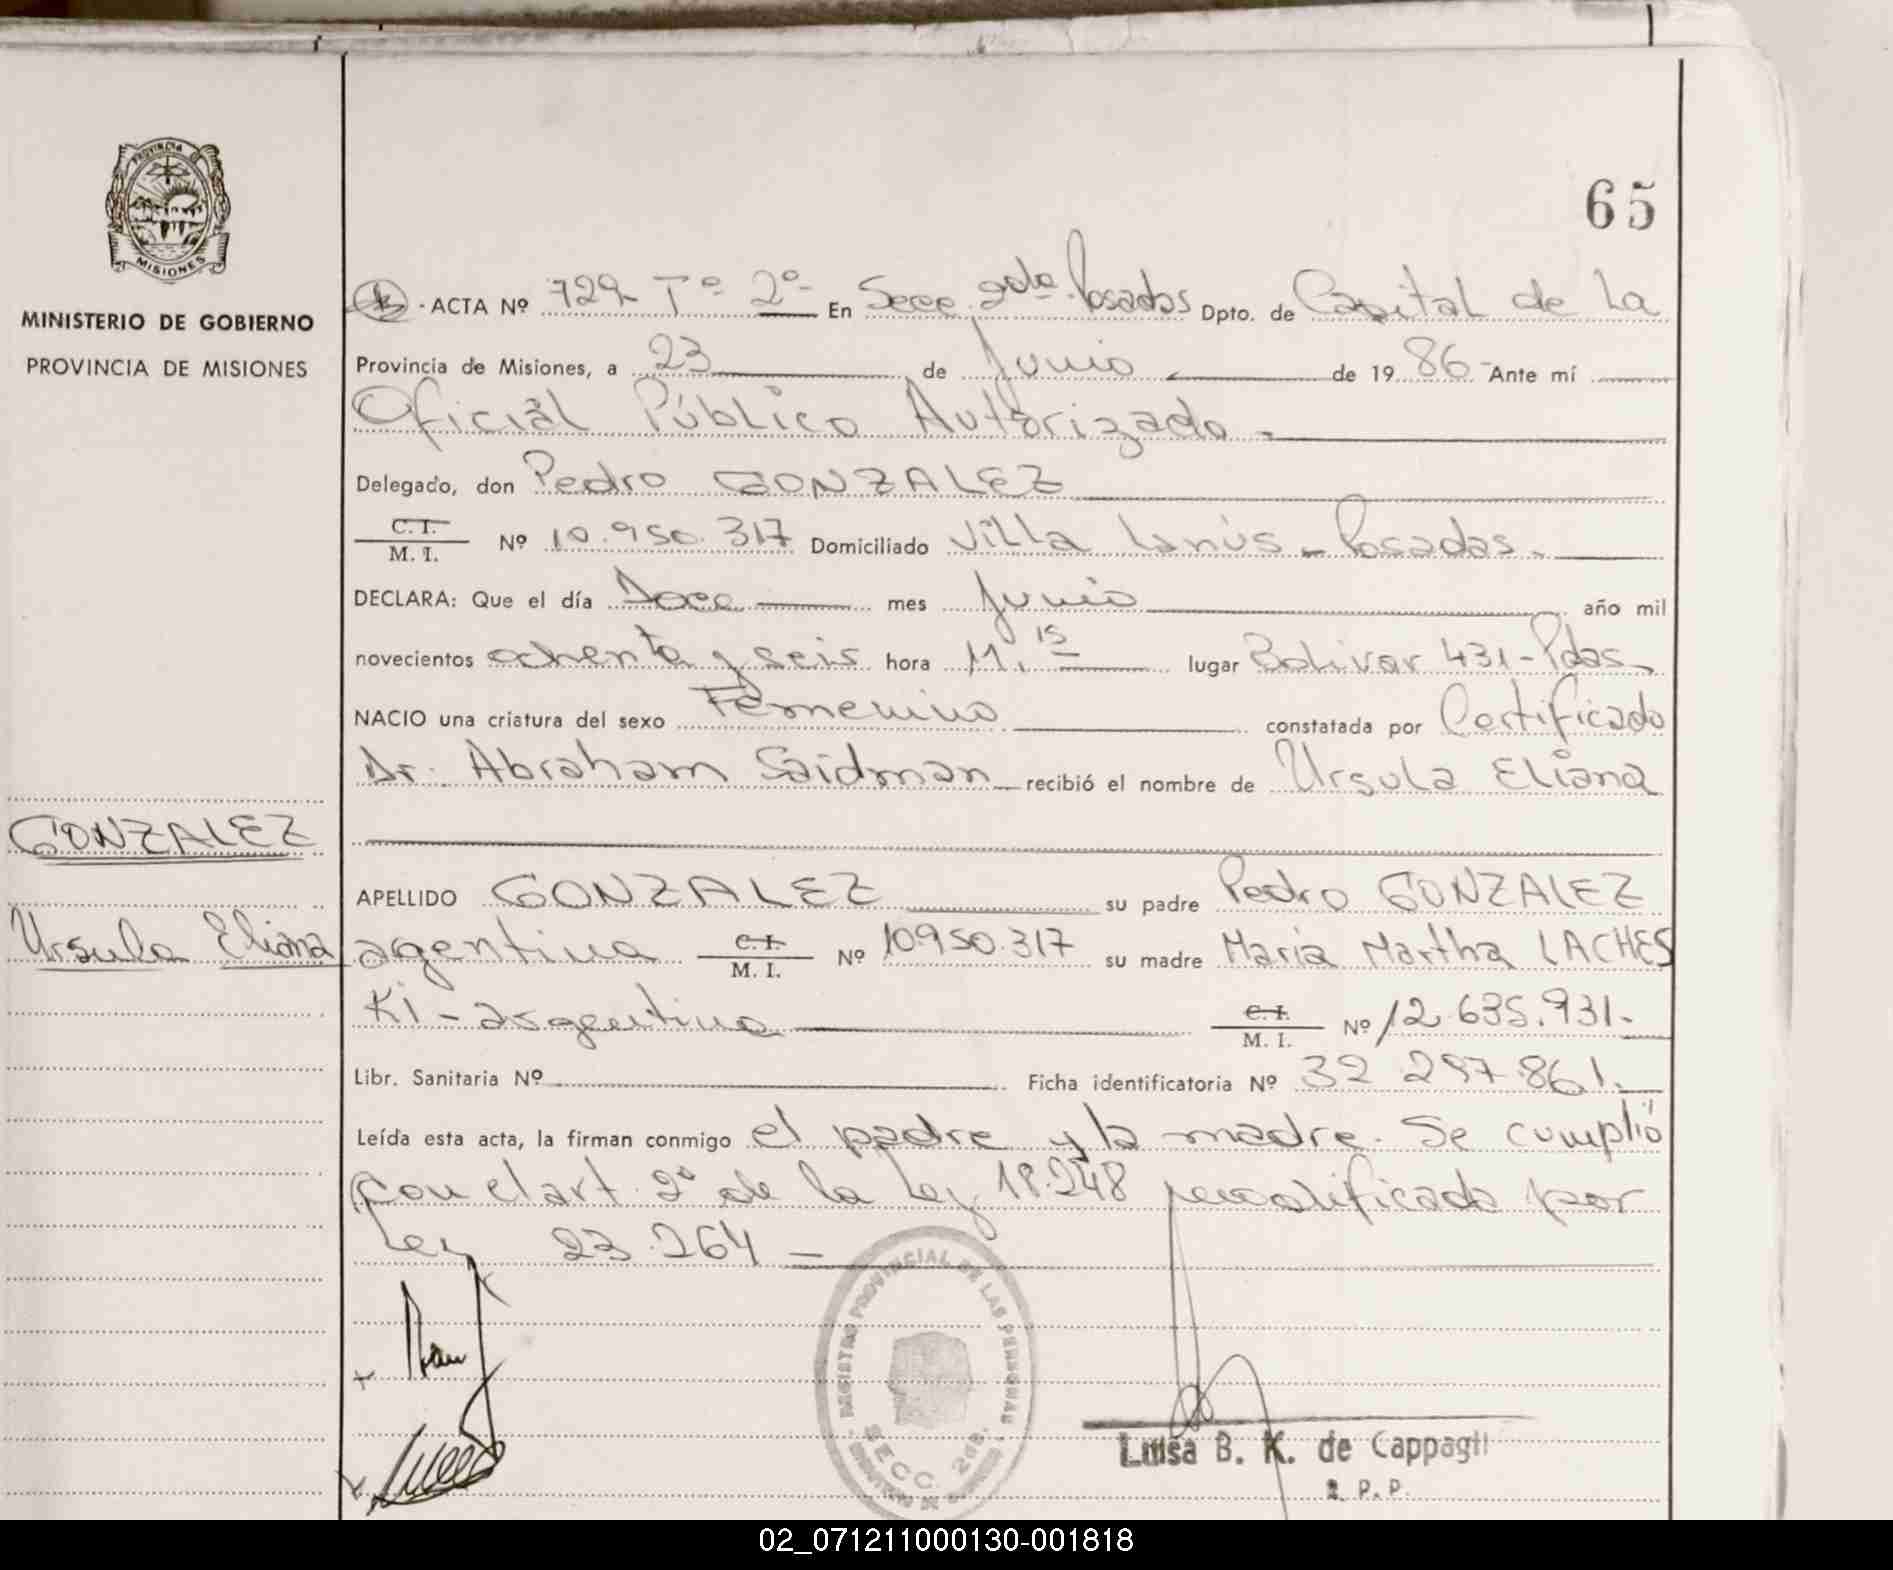 65
PROVINCIA DE
MISIONES
MINISTERIO DE GOBIERNO
PROVINCIA DE MISIONES
ACTA Nº 729- Tº 2º- En Secc. 2da. Posadas Dpto. de Capital de La
Provincia de Misiones, a 23 de Junio de 19 86- Ante mí
Oficial Público Autorizado.
Delegado, don Pedro GONZALEZ
C.I.
M. I. Nº 10.950.317 Domiciliado Villa Lanús - Posadas.
DECLARA: Que el día Doce mes Junio año mil
novecientos ochenta y seis hora 11.15 lugar Bolivar 431- Pdas.
NACIO una criatura del sexo Femenino constatada por Certificado
Dr. Abraham Saidman recibió el nombre de Ursula Eliana
GONZALEZ
APELLIDO GONZALEZ su padre Pedro GONZALEZ
Ursula Eliana
argentina C.I. M. I. Nº 10.950.317 su madre María Martha LACHES
KI - argentina C.I. M. I. Nº 12.635.931.
Libr. Sanitaria Nº Ficha identificatoria Nº 32.297.861.
Leída esta acta, la firman conmigo el padre y la madre. Se cumplió
con el art. 2º de la Ley 18.248 modificado por
Ley 23.264 -
REGISTRO PROVINCIAL DE LAS PERSONAS
SECC. 2da.
Luisa B. K. de Cappagli
O. P. P.
02_071211000130-001818